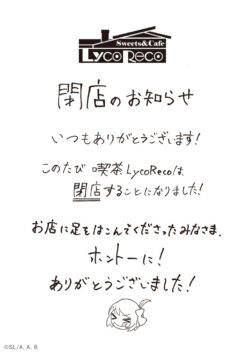 Sweets&Cafe
LycoReco
閉店のお知らせ
いつもありがとうございます！
このたび 喫茶LycoRecoは、
閉店することになりました！
お店に足をはこんでくださったみなさま、
ホントーに！
ありがとうございました！
©SL/A, A, B